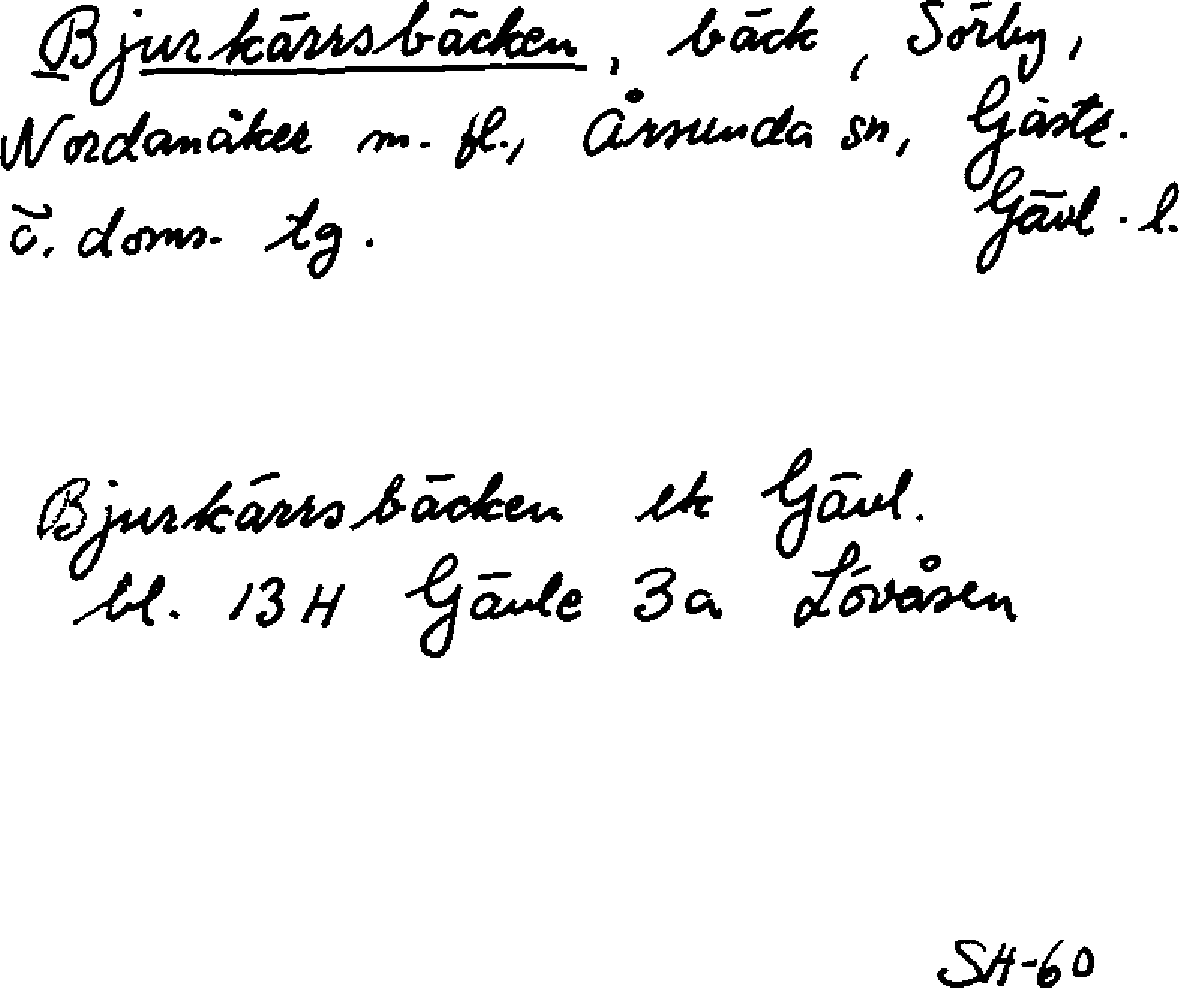 Bjurkärrsbäcken, bäck, Sörby,
Nordanåker m. fl., Årsunda sn, Gästr.
ö. doms. tg. Gävl. l.
Bjurkärrsbäcken ek Gävl.
bl. 13 H Gävle 3a Lövåsen
SH-60